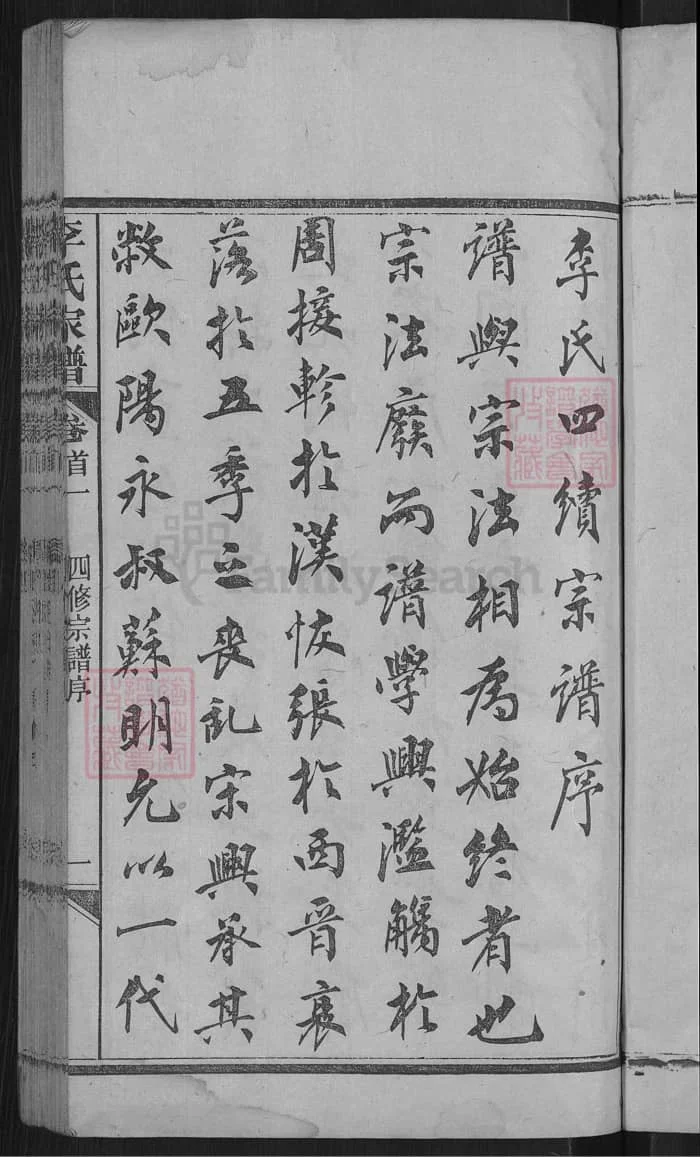 李氏四續宗譜序
譜與宗法相為始終者也
宗法廢而譜學興濫觴於
周接軫於漢恢張於西晉衰
落於五季之喪乱宋興承其
敝歐陽永叔蘇明允以一代
李氏家譜 卷首一 四修宗譜序 一
FamilySearch